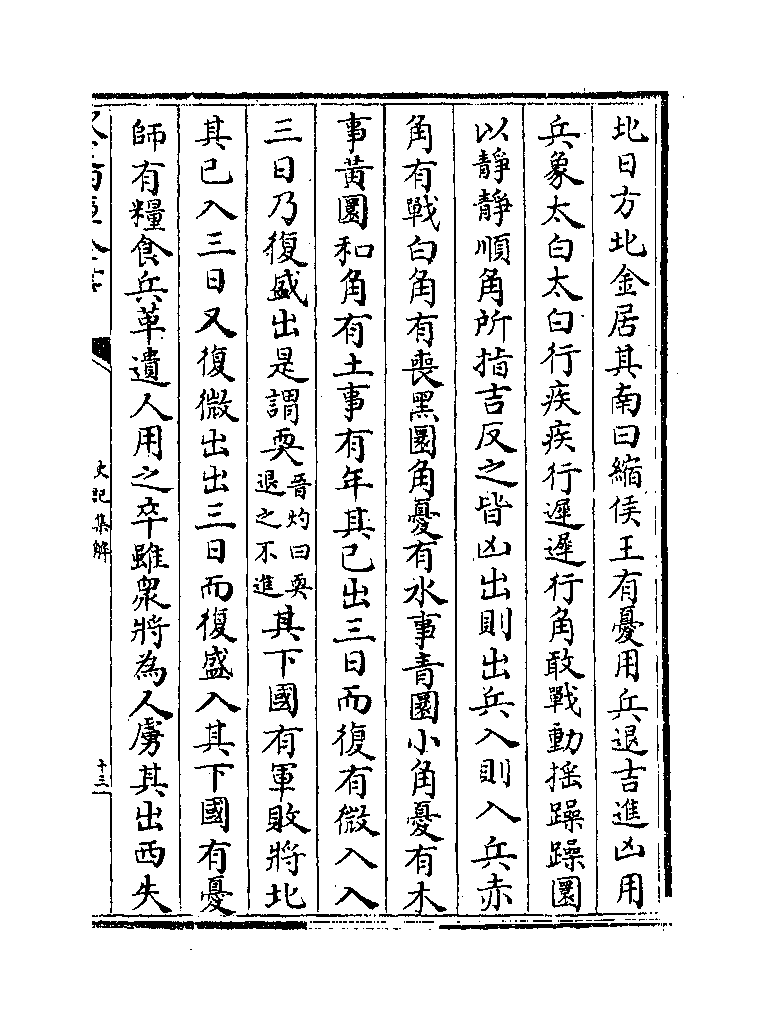 北日方北金居其南曰縮侯王有憂用兵退吉進凶用
兵象太白太白行疾疾行遲遲行角敢戰動揺躁躁圜
以靜靜順角所指吉反之皆凶出則出兵入則入兵赤
角有戰白角有喪黑圜角憂有水事青圜小角憂有木
事黄圜和角有土事有年其已出三日而復有微入入
三日乃復盛出是謂耎晋灼曰耎退之不進其下國有軍敗將北
其已入三日又復微出出三日而復盛入其下國有憂
師有糧食兵革遺人用之卒雖衆將為人虜其出西失
史記集解
十三